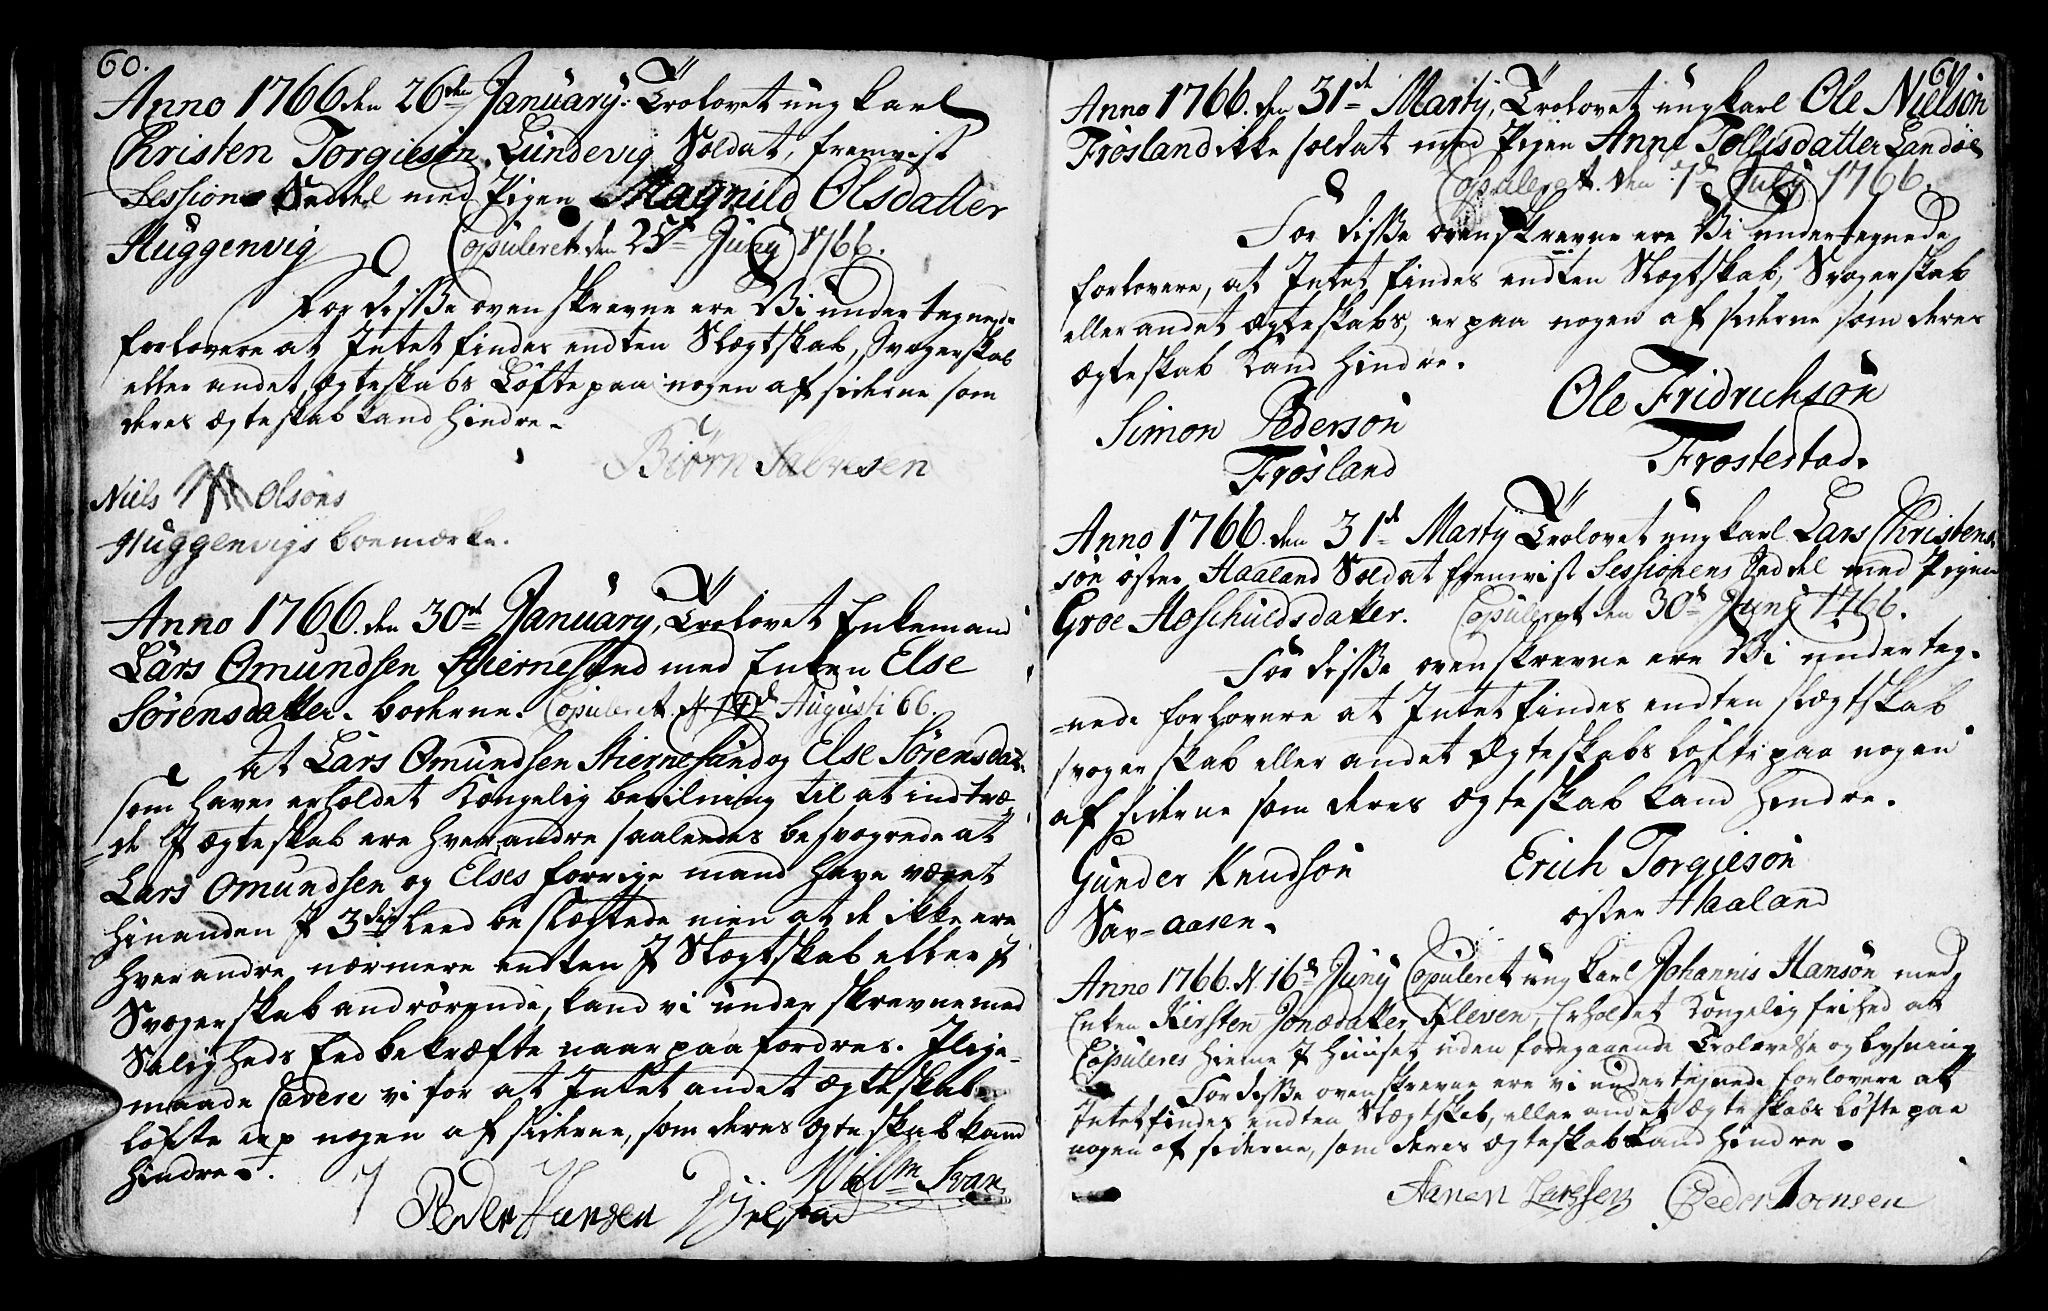 60.
Anno 1766 den 26den January. Trolovet ung karl
Christen Torgiesøn Lundevig Soldat, fremvist
Session Seddel med Pigen Magnild Olsdatter
Huggenvig Copuleret den 25de Juny 1766.
For disse ovenskrevne ere Vi undertegnede
forlovere at Intet findes endten Slægtskab, Svogerskab
eller andet Ægteskabs Løfte paa nogen af siderne som
deres Ægteskab kand hindre.
Biørn Salvesen
Niels Olsøns
Huggenvigs boemærke.
Anno 1766. den 30d January, Trolovet Enkemand
Lars Omundsen Stiernesund med Enken Else
Sørensdatter boderne. Copuleret d 14d Augusti 66.
At Lars Omundsen Stiernesund og Else Sørensdat.
som haver erholdet Kongelig bevilning til at indtræ=
=de J Ægteskab ere hverandre saaledes besvogrede at
Lars Omundsen og Elses forrige mand have været
hinanden J 3die Leed beslægtede men at de ikke ere
hverandre nærmere endten J Slægtskab eller J
Svogerskab andrørende, kand vi under skrevne med
Saligheds Eed bekræfte naar paa fordres. Jlige=
maade Cavere vi for at Intet andet Ægteskabs
løfte er p nogen af siderne, som deres Ægteskab kand
hindre.
Willm Svan
Peder Hansen
Anno 1766. den 31d Marty, Trolovet ung karl Ole Nielsøn
Frøsland ikke soldat med Pigen Anne Tollisdatter Landøe
Copuleret den 7d July 1766.
For disse ovenskrevne ere Vi undertegnede
forlovere, at Intet findes endten Slægtskab, Svogerskab
eller andet Ægteskabs, er paa nogen af siderne som deres
Ægteskab kand hindre.
Simon Pedersøn Ole Fridrichsøn
Frøsland Frøstestad.
Anno 1766. den 31d Marty Trolovet ung karl Lars Christens
søn Øster Haaland Soldat fremvist Sessionens Seddel med Pigen
Groe Hoschuldsdatter. Copuleret den 30d Juny 1766.
For disse ovenskrevne ere Vi underteg-
=nede forlovere at Intet findes endten slægtskab
svogerskab eller andet Ægteskabs løfte paa nogen
af siderne som deres Ægteskab kand hindre.
Gunder Knudsøn Erich Torgiesøn
Sav-aasen. Øster Haaland
Anno 1766. d. 16d Juny Copuleret ung karl Johannis Hansøn med
Enken Kirsten Jonædatter Kleven, Erholtet Kongelig frihed at
Copuleres hieme J Huuset uden foregaaende Trolovelse og Lysning
For disse ovenskrevne ere vi undertegnede forlovere at
Intet findes endten Slægtskab, eller andet Ægteskabs løfte paa
nogen af siderne, som deres Ægteskab kand hindre.
Aanen Larssen Peder Joensen